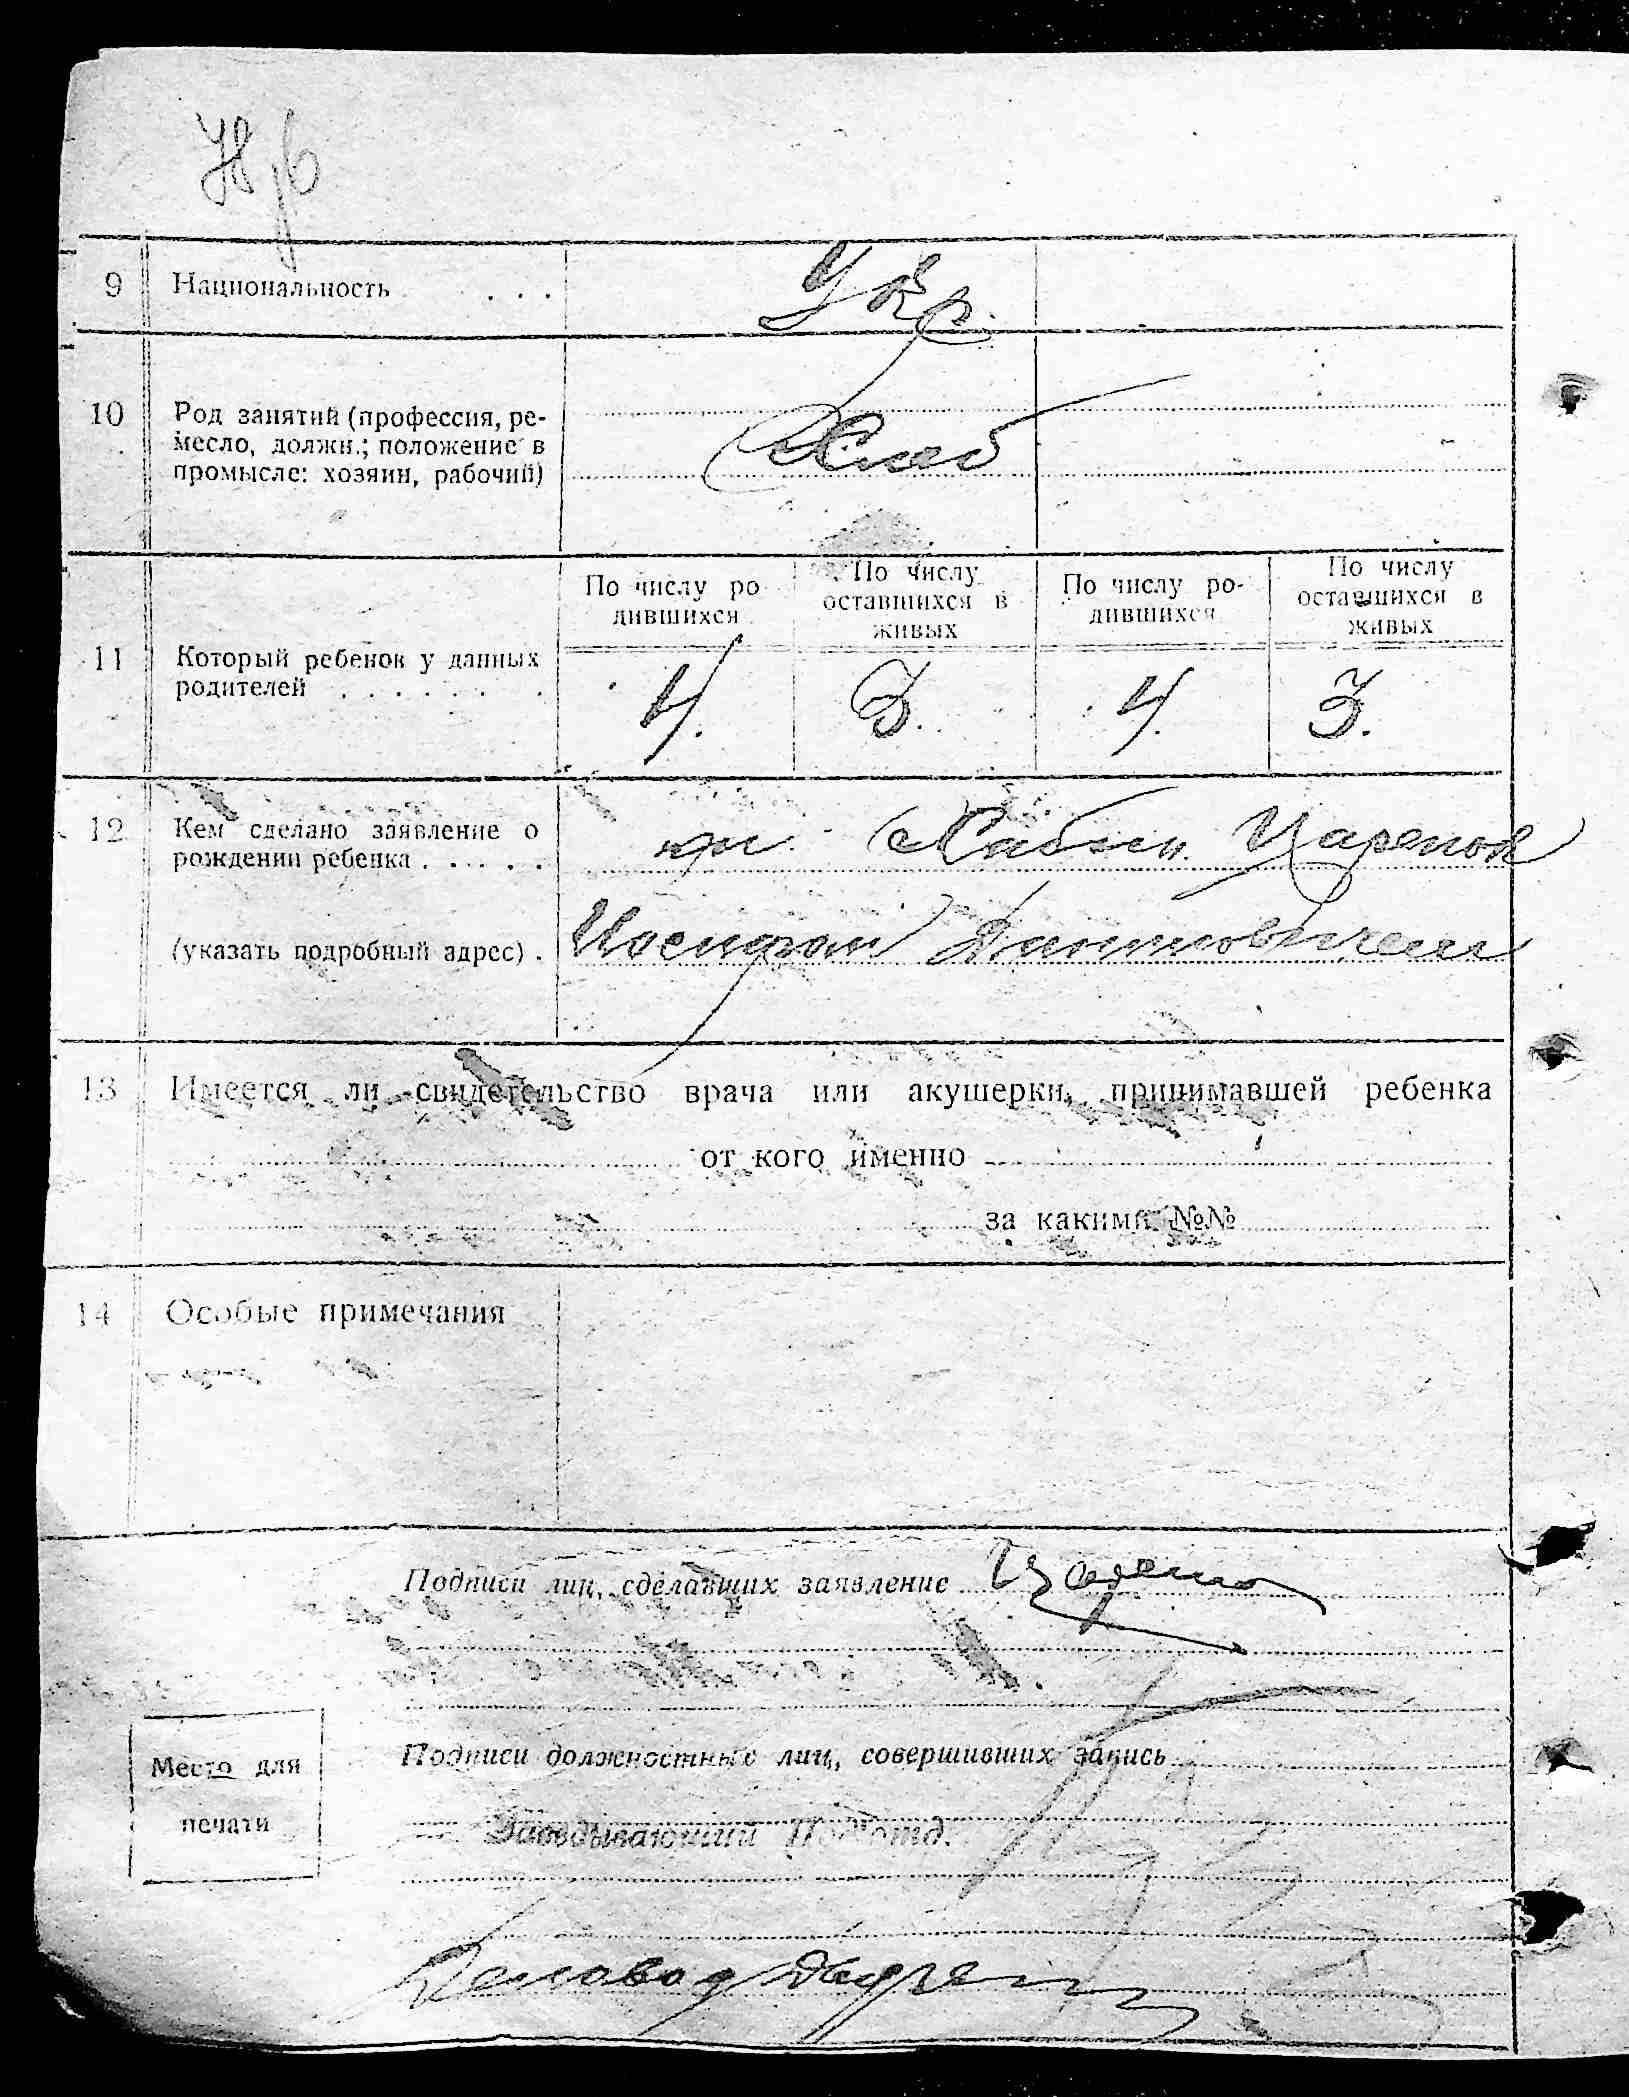 9 Национальность . . . Укр.
10 Род занятий (профессия, ре-
месло, должн.; положение в
промысле: хозяин, рабочий)
Хлеб
11 Который ребенок у данных
родителей . . . . . . .
По числу ро
дившихся
По числу
оставшихся в
живых
По числу ро-
дившихся
По числу
оставшихся в
живых
4. 3. 4. 3.
12 Кем сделано заявление о
рождении ребенка . . . . .
(указать подробный адрес) .
13 Имеется ли свидетельство врача или акушерки, принимавшей ребенка
от кого именно
за какими №№
14 Особые примечания
Подписи лиц, сделавших заявление
Подписи должностных лиц, совершивших запись
Место для
печати
Заведывающий Под'отд.
Деловод